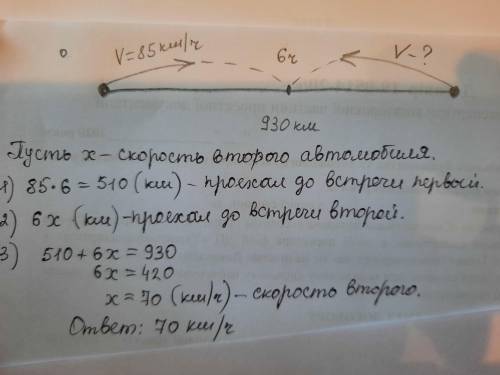 V=85км/ч 6ч V-?
930 км
Пусть х - скорость второго автомобиля.
1) 85·6 = 510 (км) - проехал до встречи первый.
2) 6х (км) - проехал до встречи второй.
3) 510 + 6х = 930
6х = 420
х = 70 (км/ч) - скорость второго.
Ответ: 70 км/ч